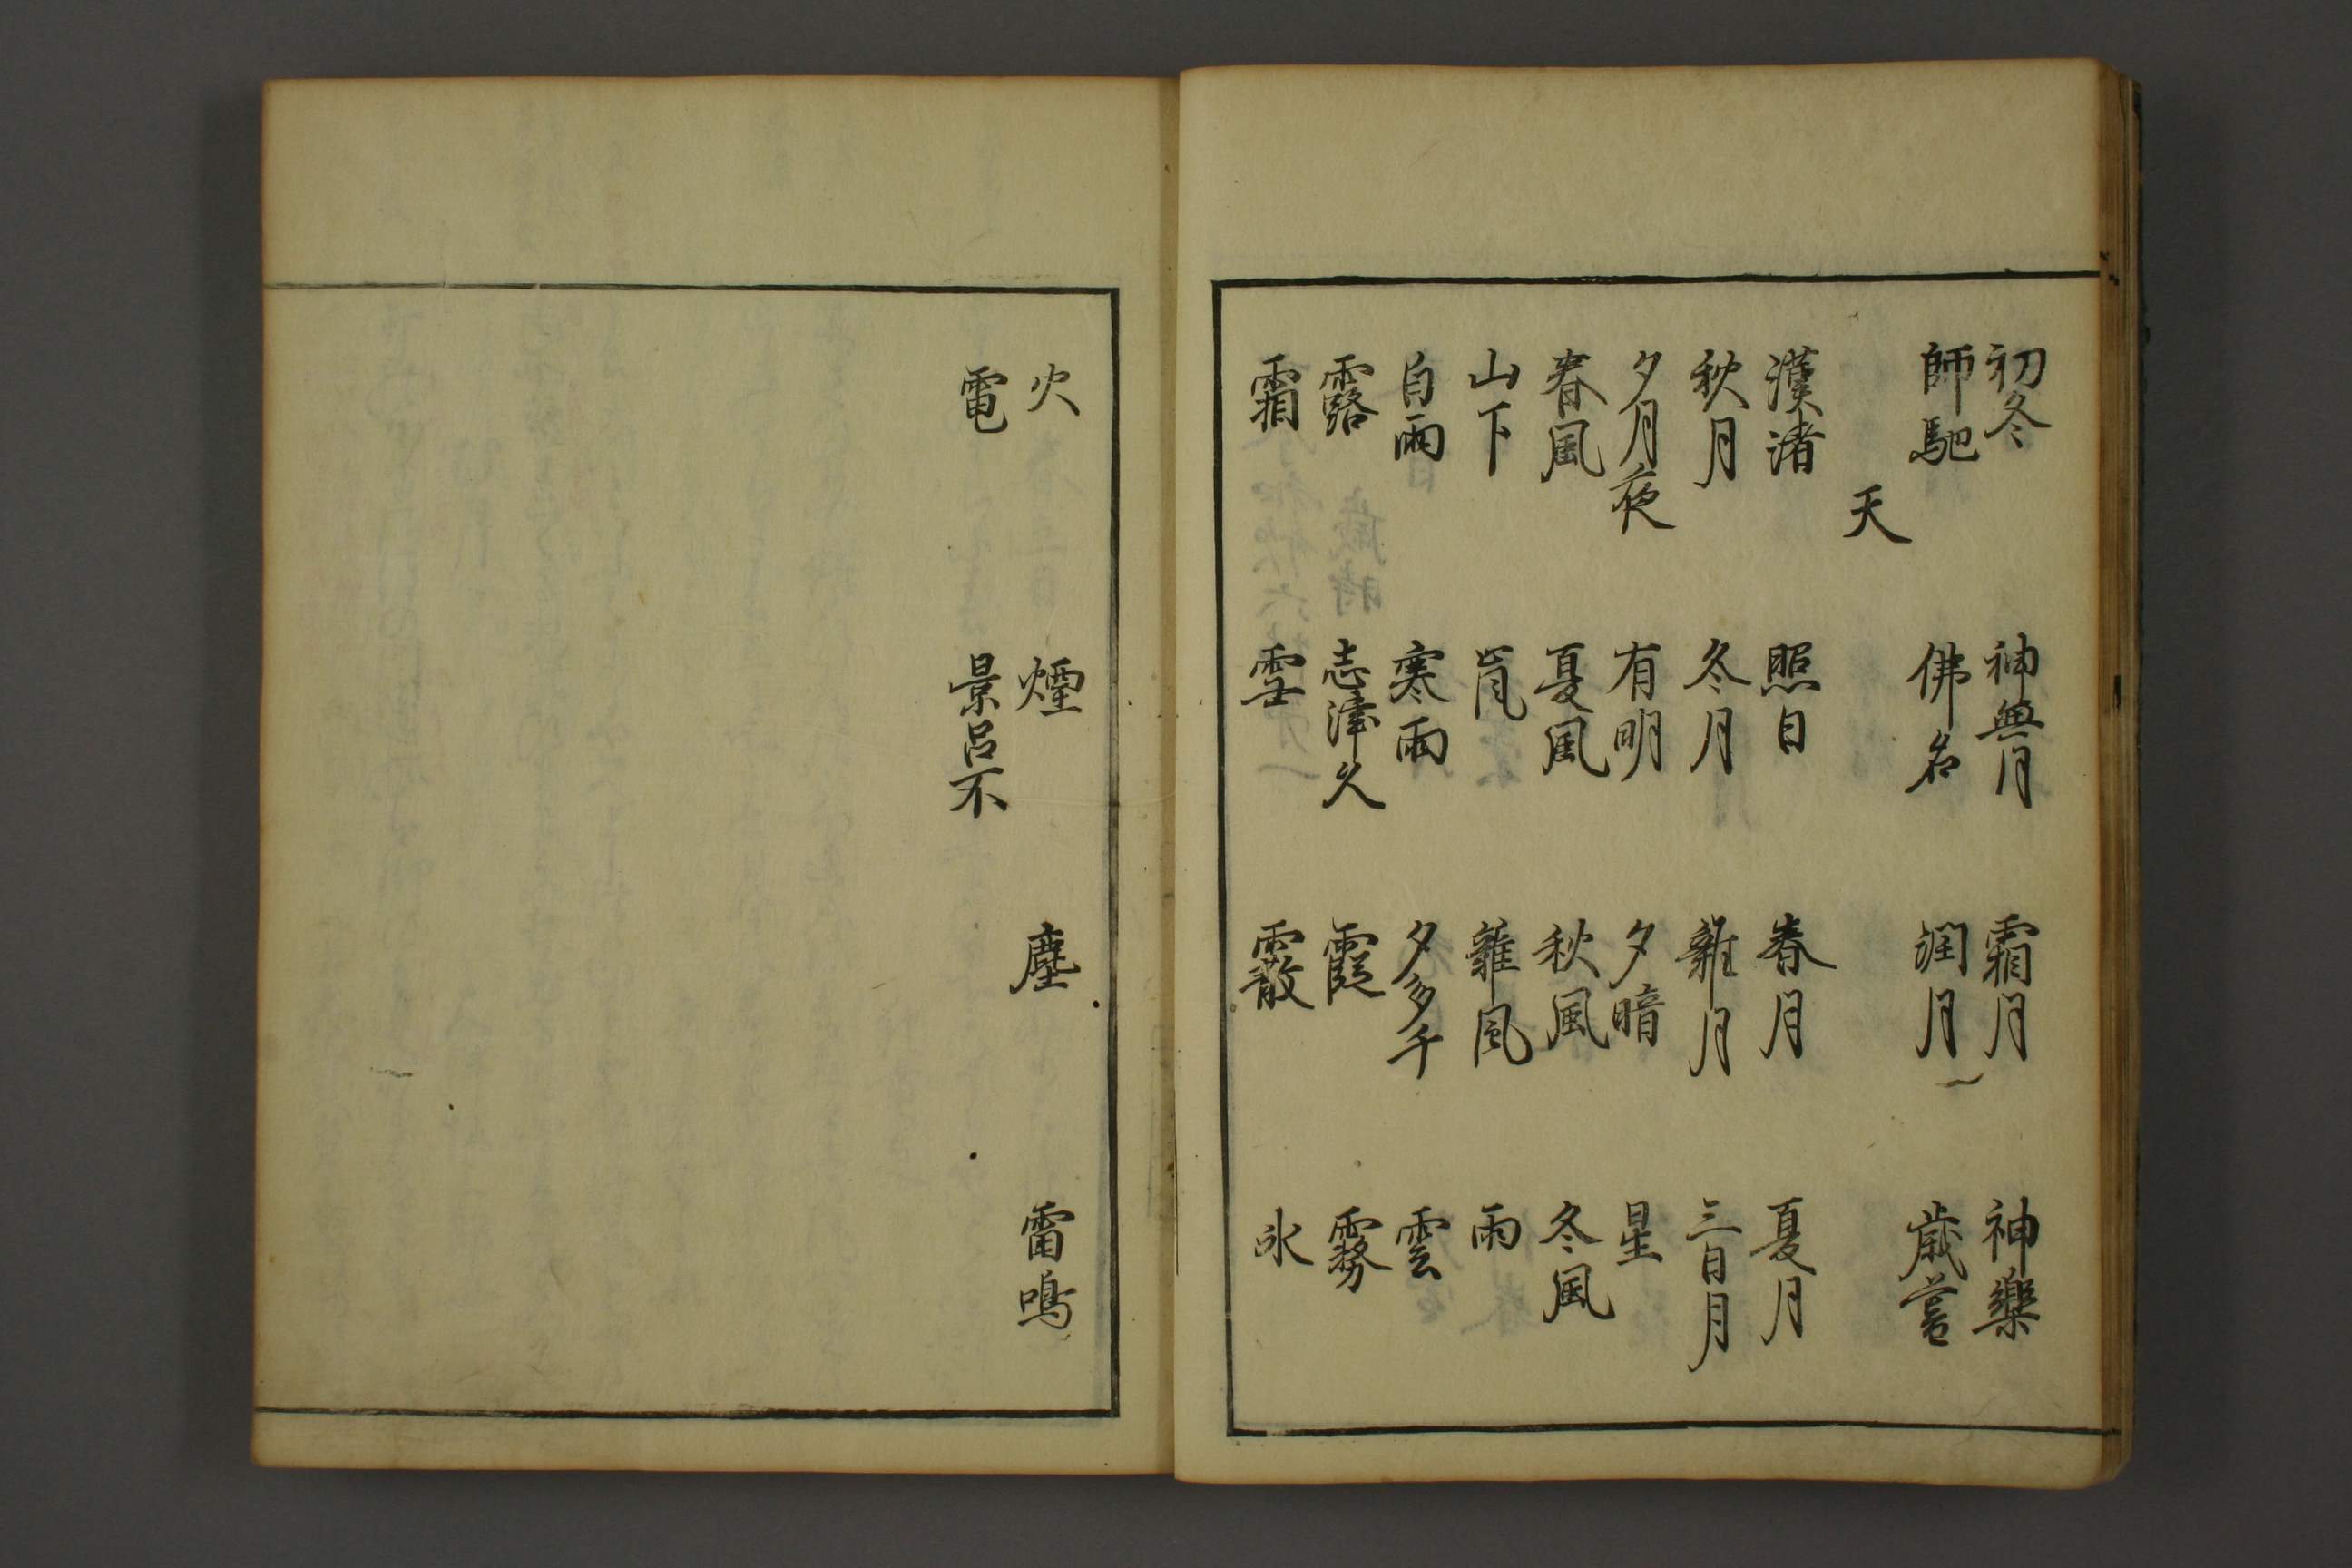 初冬 神無月 霜月 神樂
師馳 佛名 潤月 歳暮
天
漢渚 照日 春月 夏月
秋月 冬月 雜月 三日月
夕月夜 有明 夕暗 星
春風 夏風 秋風 冬風
山下 雜風 雨
白雨 寒雨 夕多千 雲
露 志津久 霞 霧
霜 雪 霰 氷
火 煙 塵 雷鳴
電 景呂不